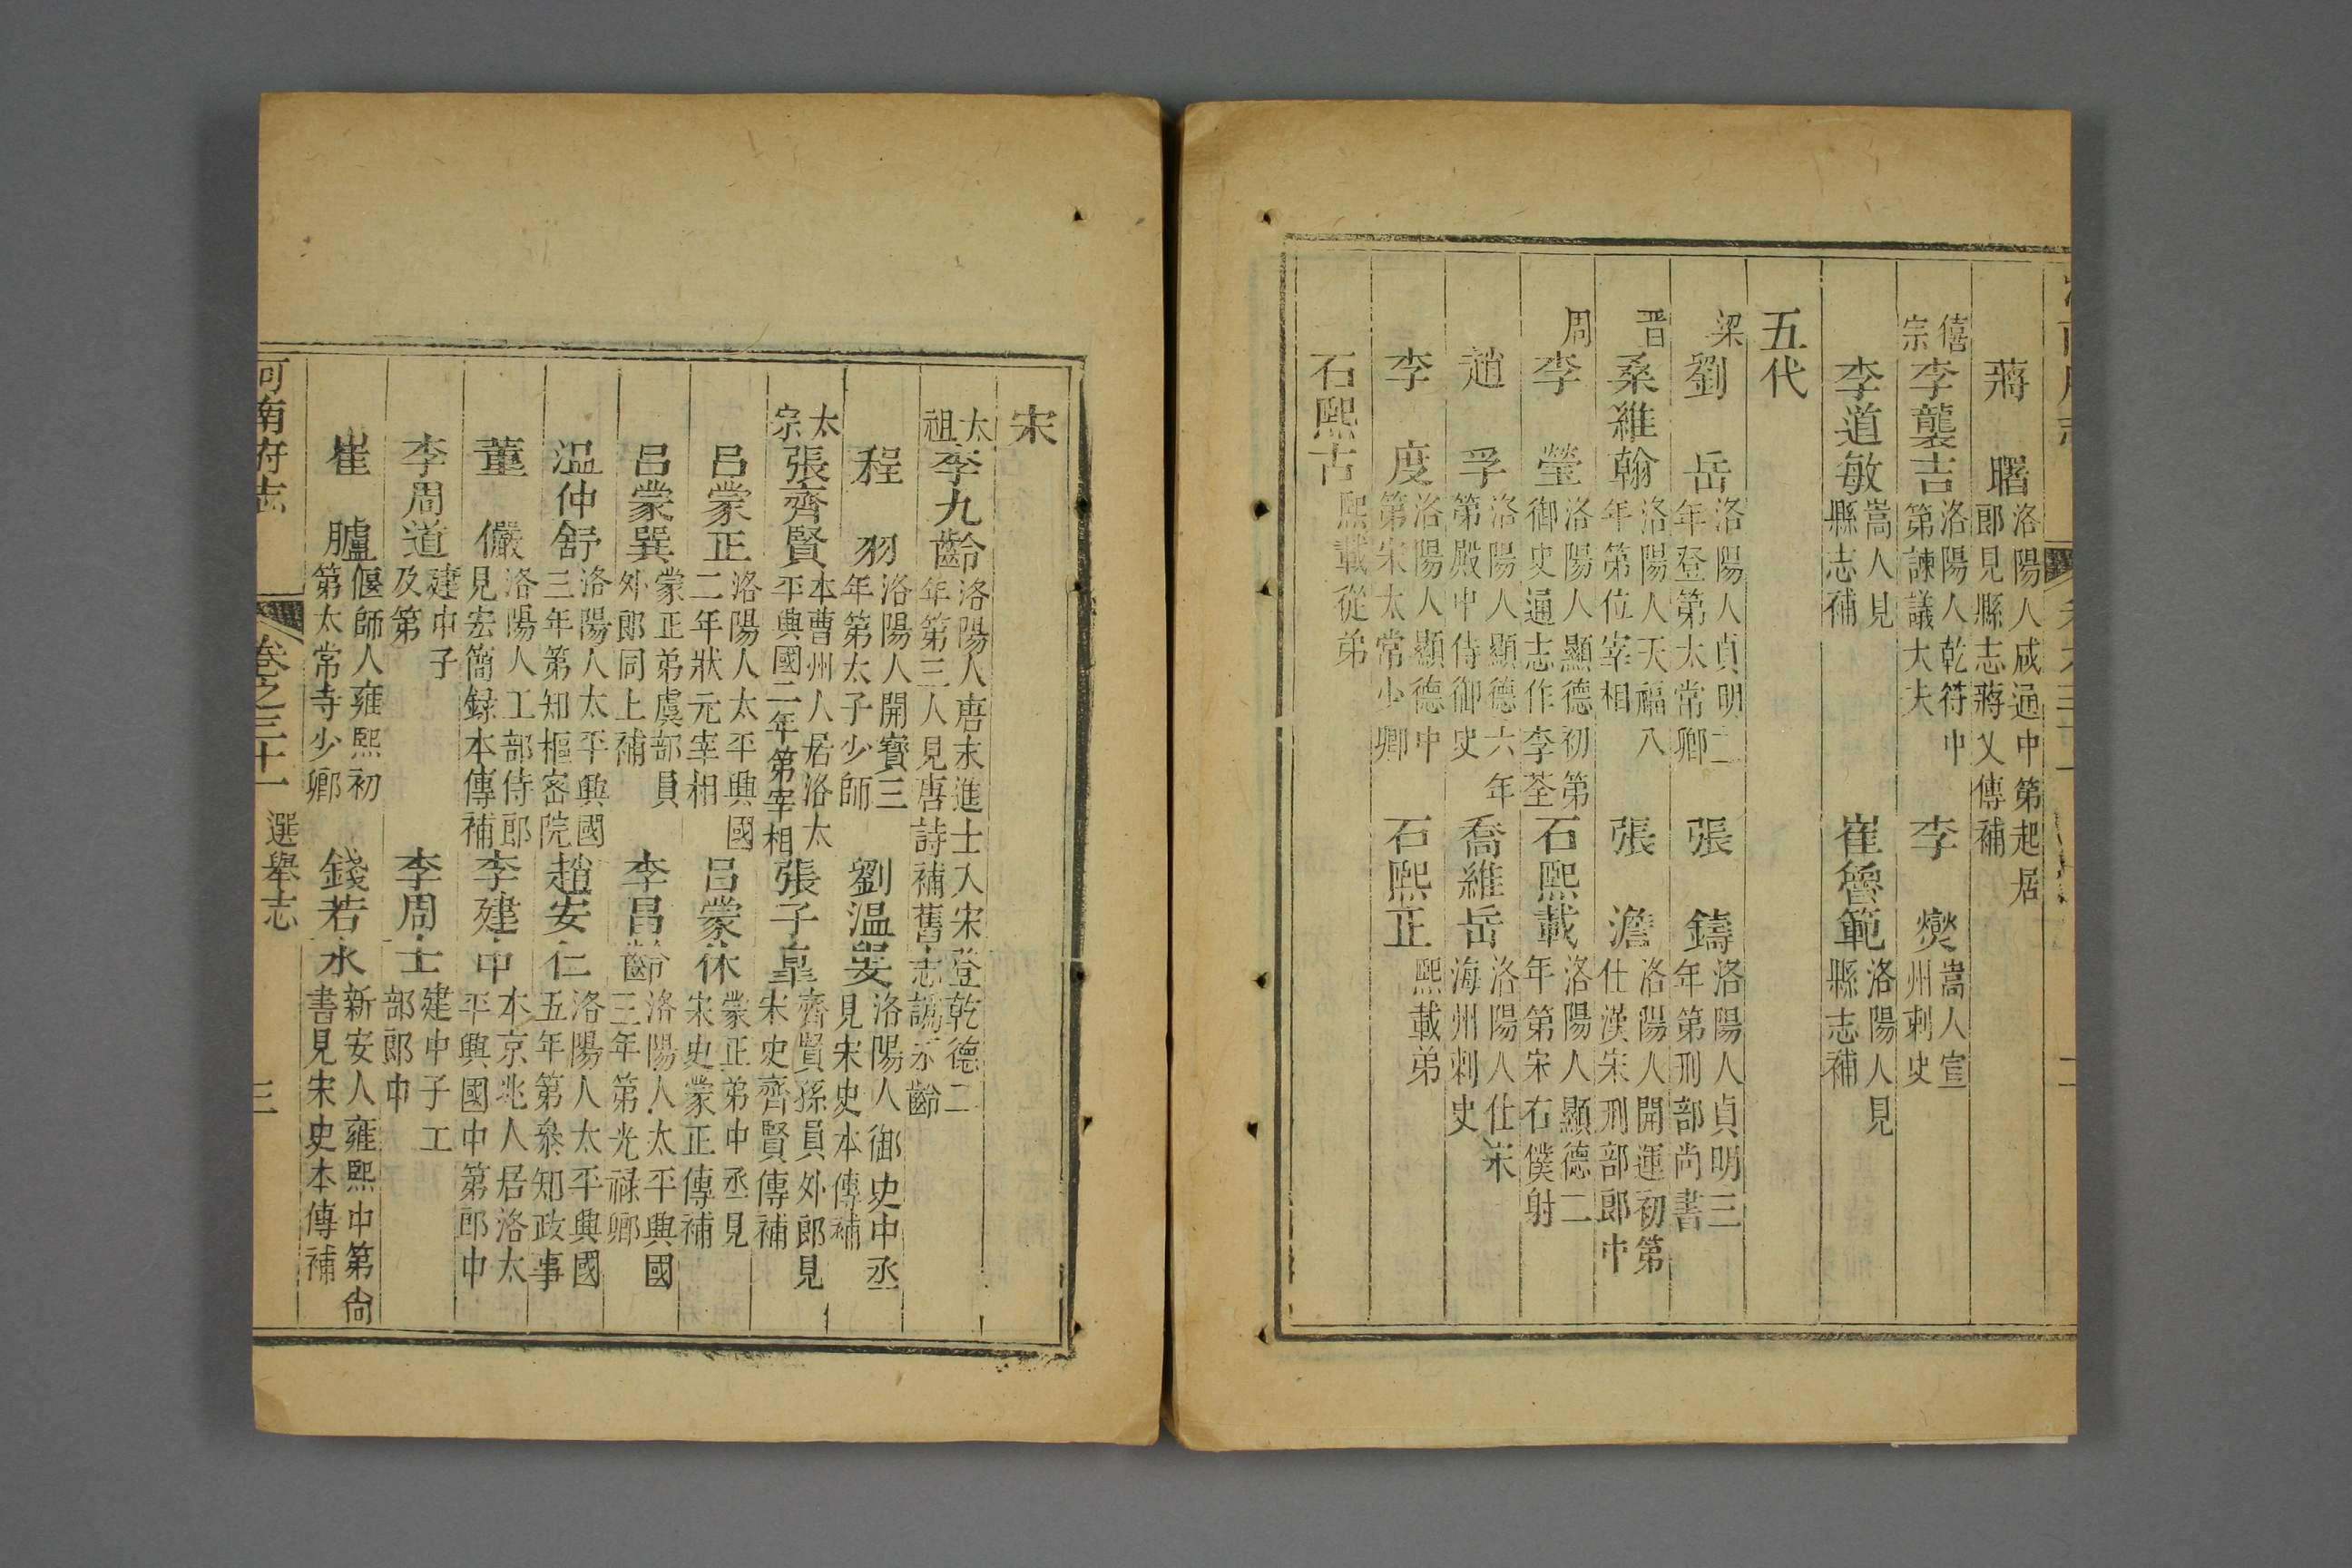 蔣　曙洛陽人咸通中第起居郎見縣志蔣乂傳補
僖宗李襲吉洛陽人乾符中第諫議大夫　李　燠嵩人宣州刺史
李道敏嵩人見縣志補　崔魯範洛陽人見縣志補
五代
梁劉　岳洛陽人貞明二年登第太常卿　張　鑄洛陽人貞明三年第刑部尚書
晋桑維翰洛陽人天福八年第位宰相　張　澹洛陽人開運初第仕漢宋刑部郎中
周李　瑩洛陽人顯德初第御史通志作李荃　石熙載洛陽人顯德二年第宋右僕射
趙　孚洛陽人顯德六年第殿中侍御史　喬維岳洛陽人仕宋海州刺史
李　度洛陽人顯德中第宋太常少卿　石熙正熙載弟
石熙古熙載從弟
宋
太祖李九齡洛陽人唐末進士入宋登乾德二年第三人見唐詩補舊志譌永齡
程　羽洛陽人開寳三年第太子少師　劉温叟洛陽人御史中丞見宋史本傳補
太宗張齊賢本曹州人居洛太平興國二年第宰相　張子皐齊賢孫員外郎見宋史齊賢傳補
呂蒙正洛陽人太平興國二年狀元宰相　呂蒙休蒙正弟中丞見宋史蒙正傳補
呂蒙巽蒙正弟虞部員外郎同上補　李昌齡洛陽人太平興國三年第光祿卿
温仲舒洛陽人太平興國三年第知樞密院　趙安仁洛陽人太平興國五年第叅知政事
董　儼洛陽人工部侍郎見宏簡録本傳補　李建中本京兆人居洛太平興國中第郎中
李周道建中子及第　李周士建中子工部郎中
崔　臚偃師人雍熙初第太常寺少卿　錢若水新安人雍熙中第尙書見宋史本傳補
河南府志　卷之三十一　選舉志　三